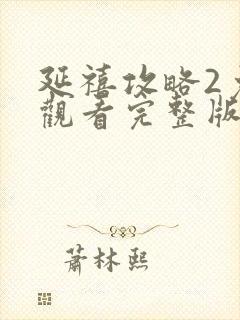 延禧攻略2
觀看完整版
蕭林熙